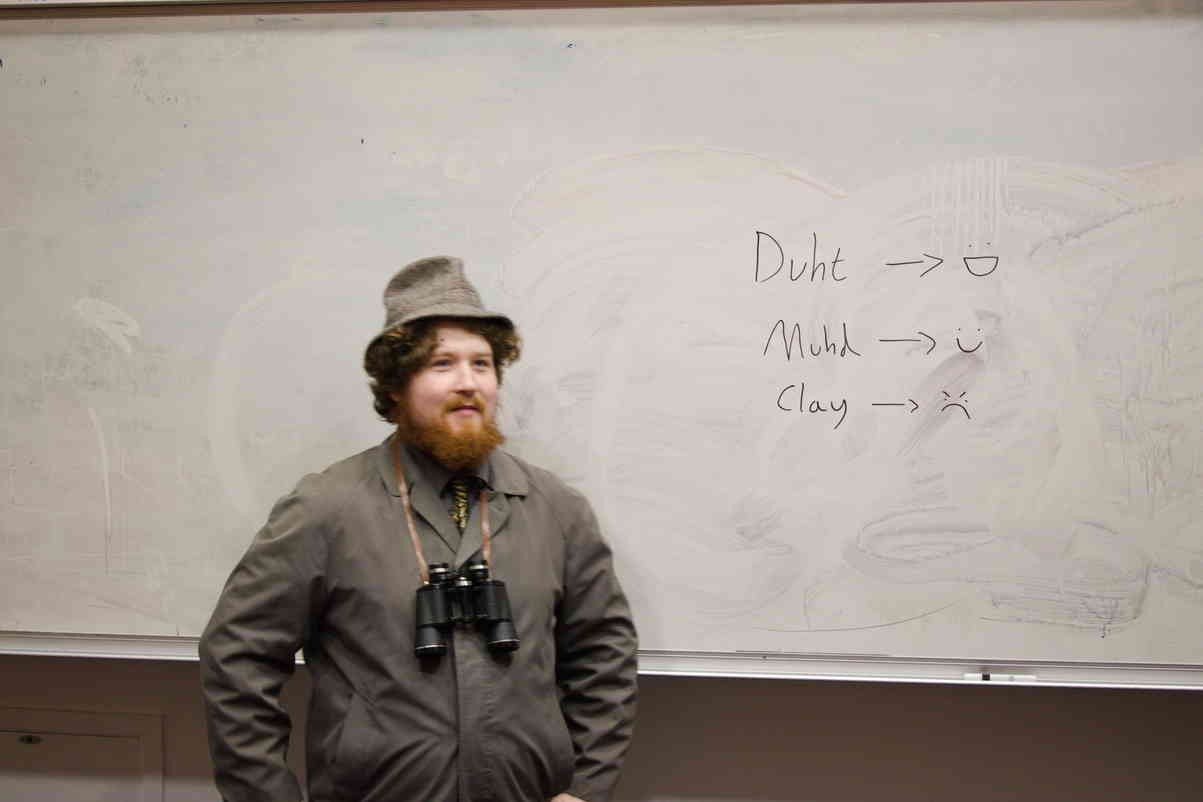 Duht →
Muhd →
Clay →